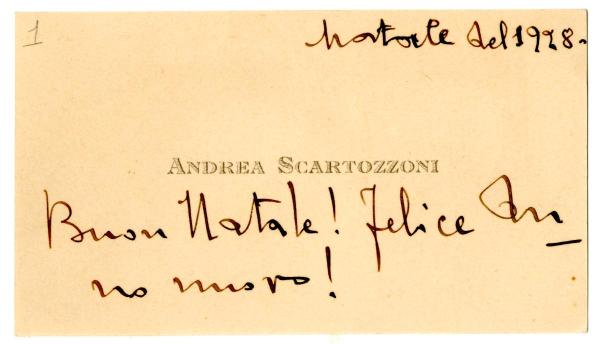 1
Natale del 1928.
ANDREA SCARTOZZONI
Buon Natale! Felice An_
no nuovo!